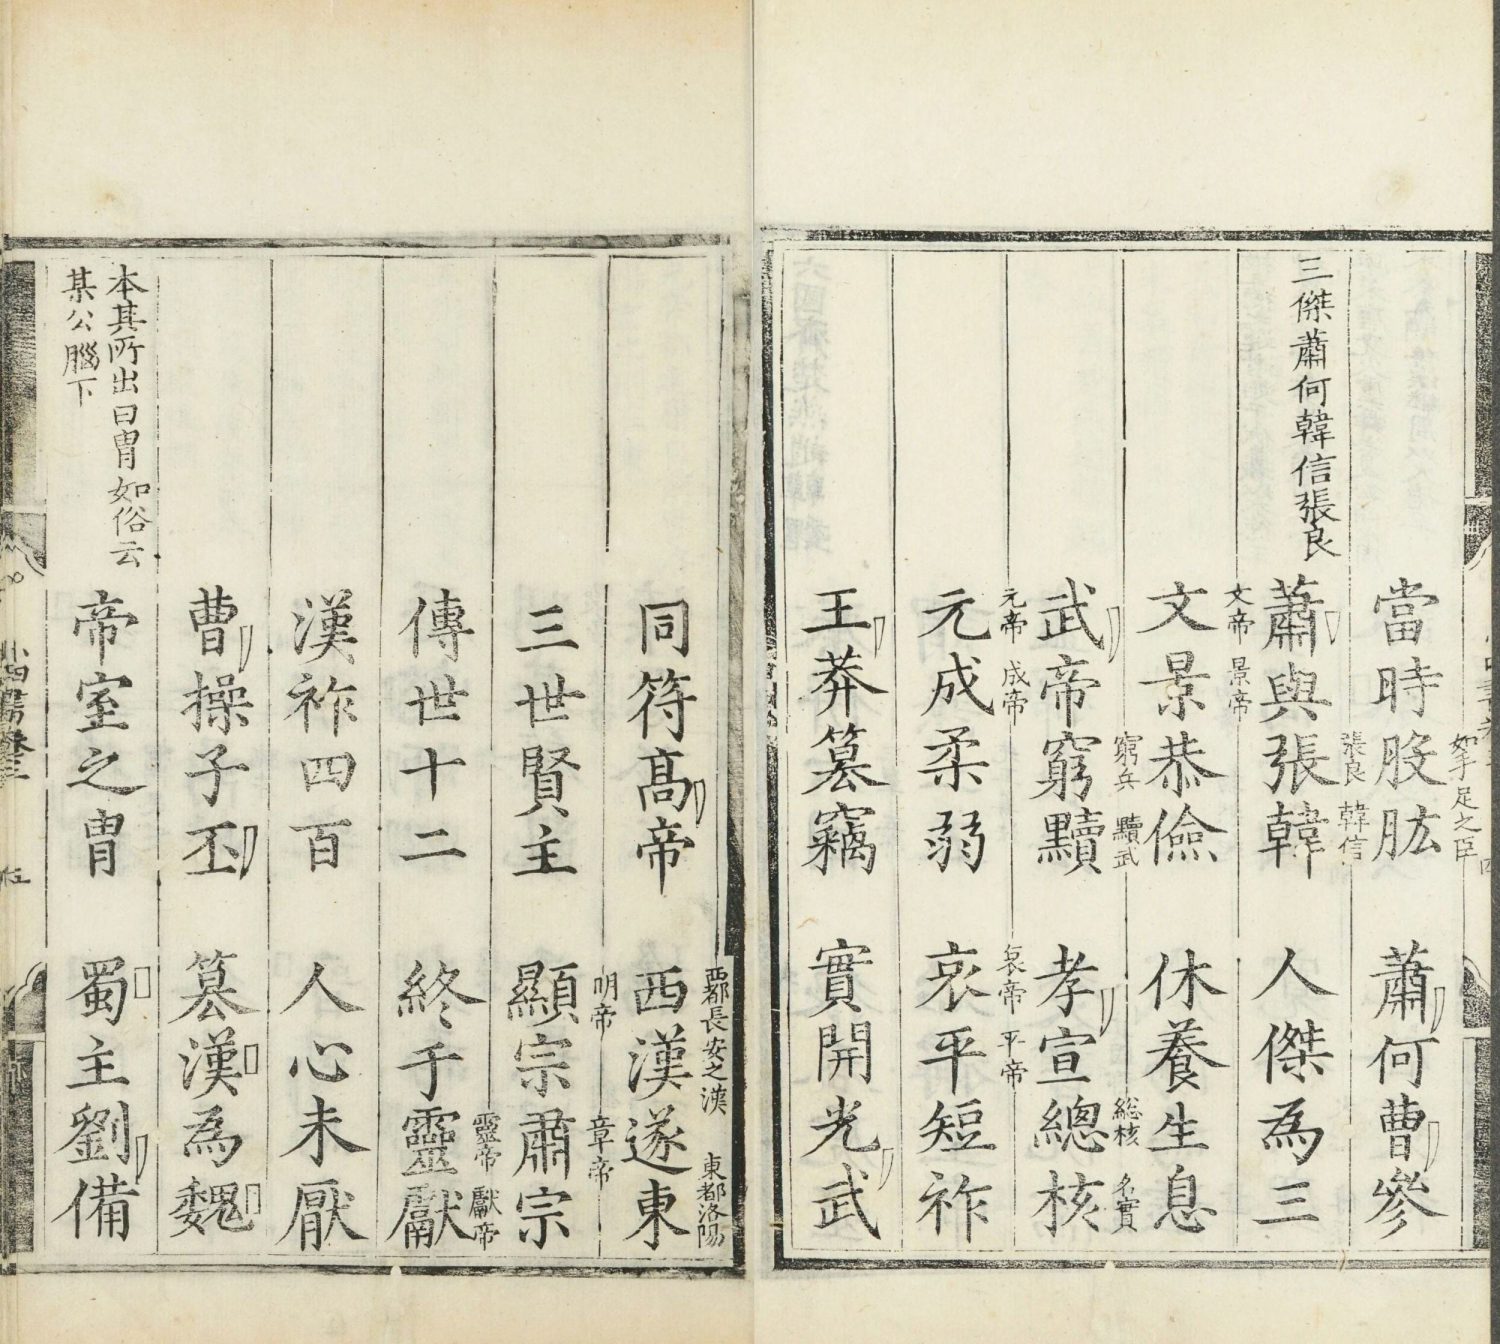 三傑蕭何韓信張良
當時股肱 蕭何曹參
如手足之臣
蕭與張韓 人傑為三
張良 韓信
文景恭儉 休養生息
文帝 景帝
武帝窮黷 孝宣總核
窮兵 黷武 総核 名實
元成柔弱 哀平短祚
元帝 成帝 哀帝 平帝
王莽篡竊 實開光武
同符髙帝 西漢遂東
西都長安之漢 東都洛陽
三世賢主 顯宗肅宗
明帝 章帝
傳世十二 終于靈獻
靈帝 獻帝
漢祚四百 人心未厭
曹操子丕 篡漢為魏
本其所出曰冑如俗云
某公腦下
帝室之冑 蜀主劉備